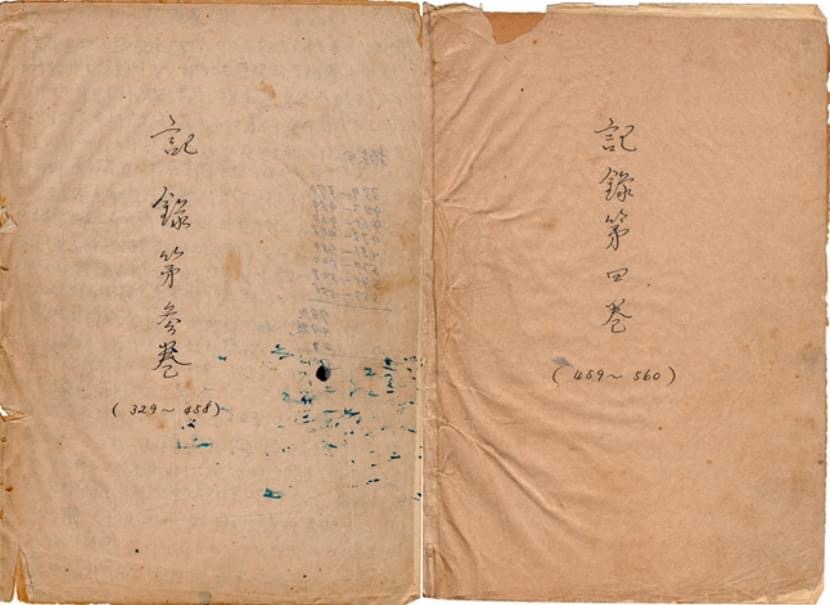 記錄第參卷
(329~458)
記錄第四卷
(459~560)